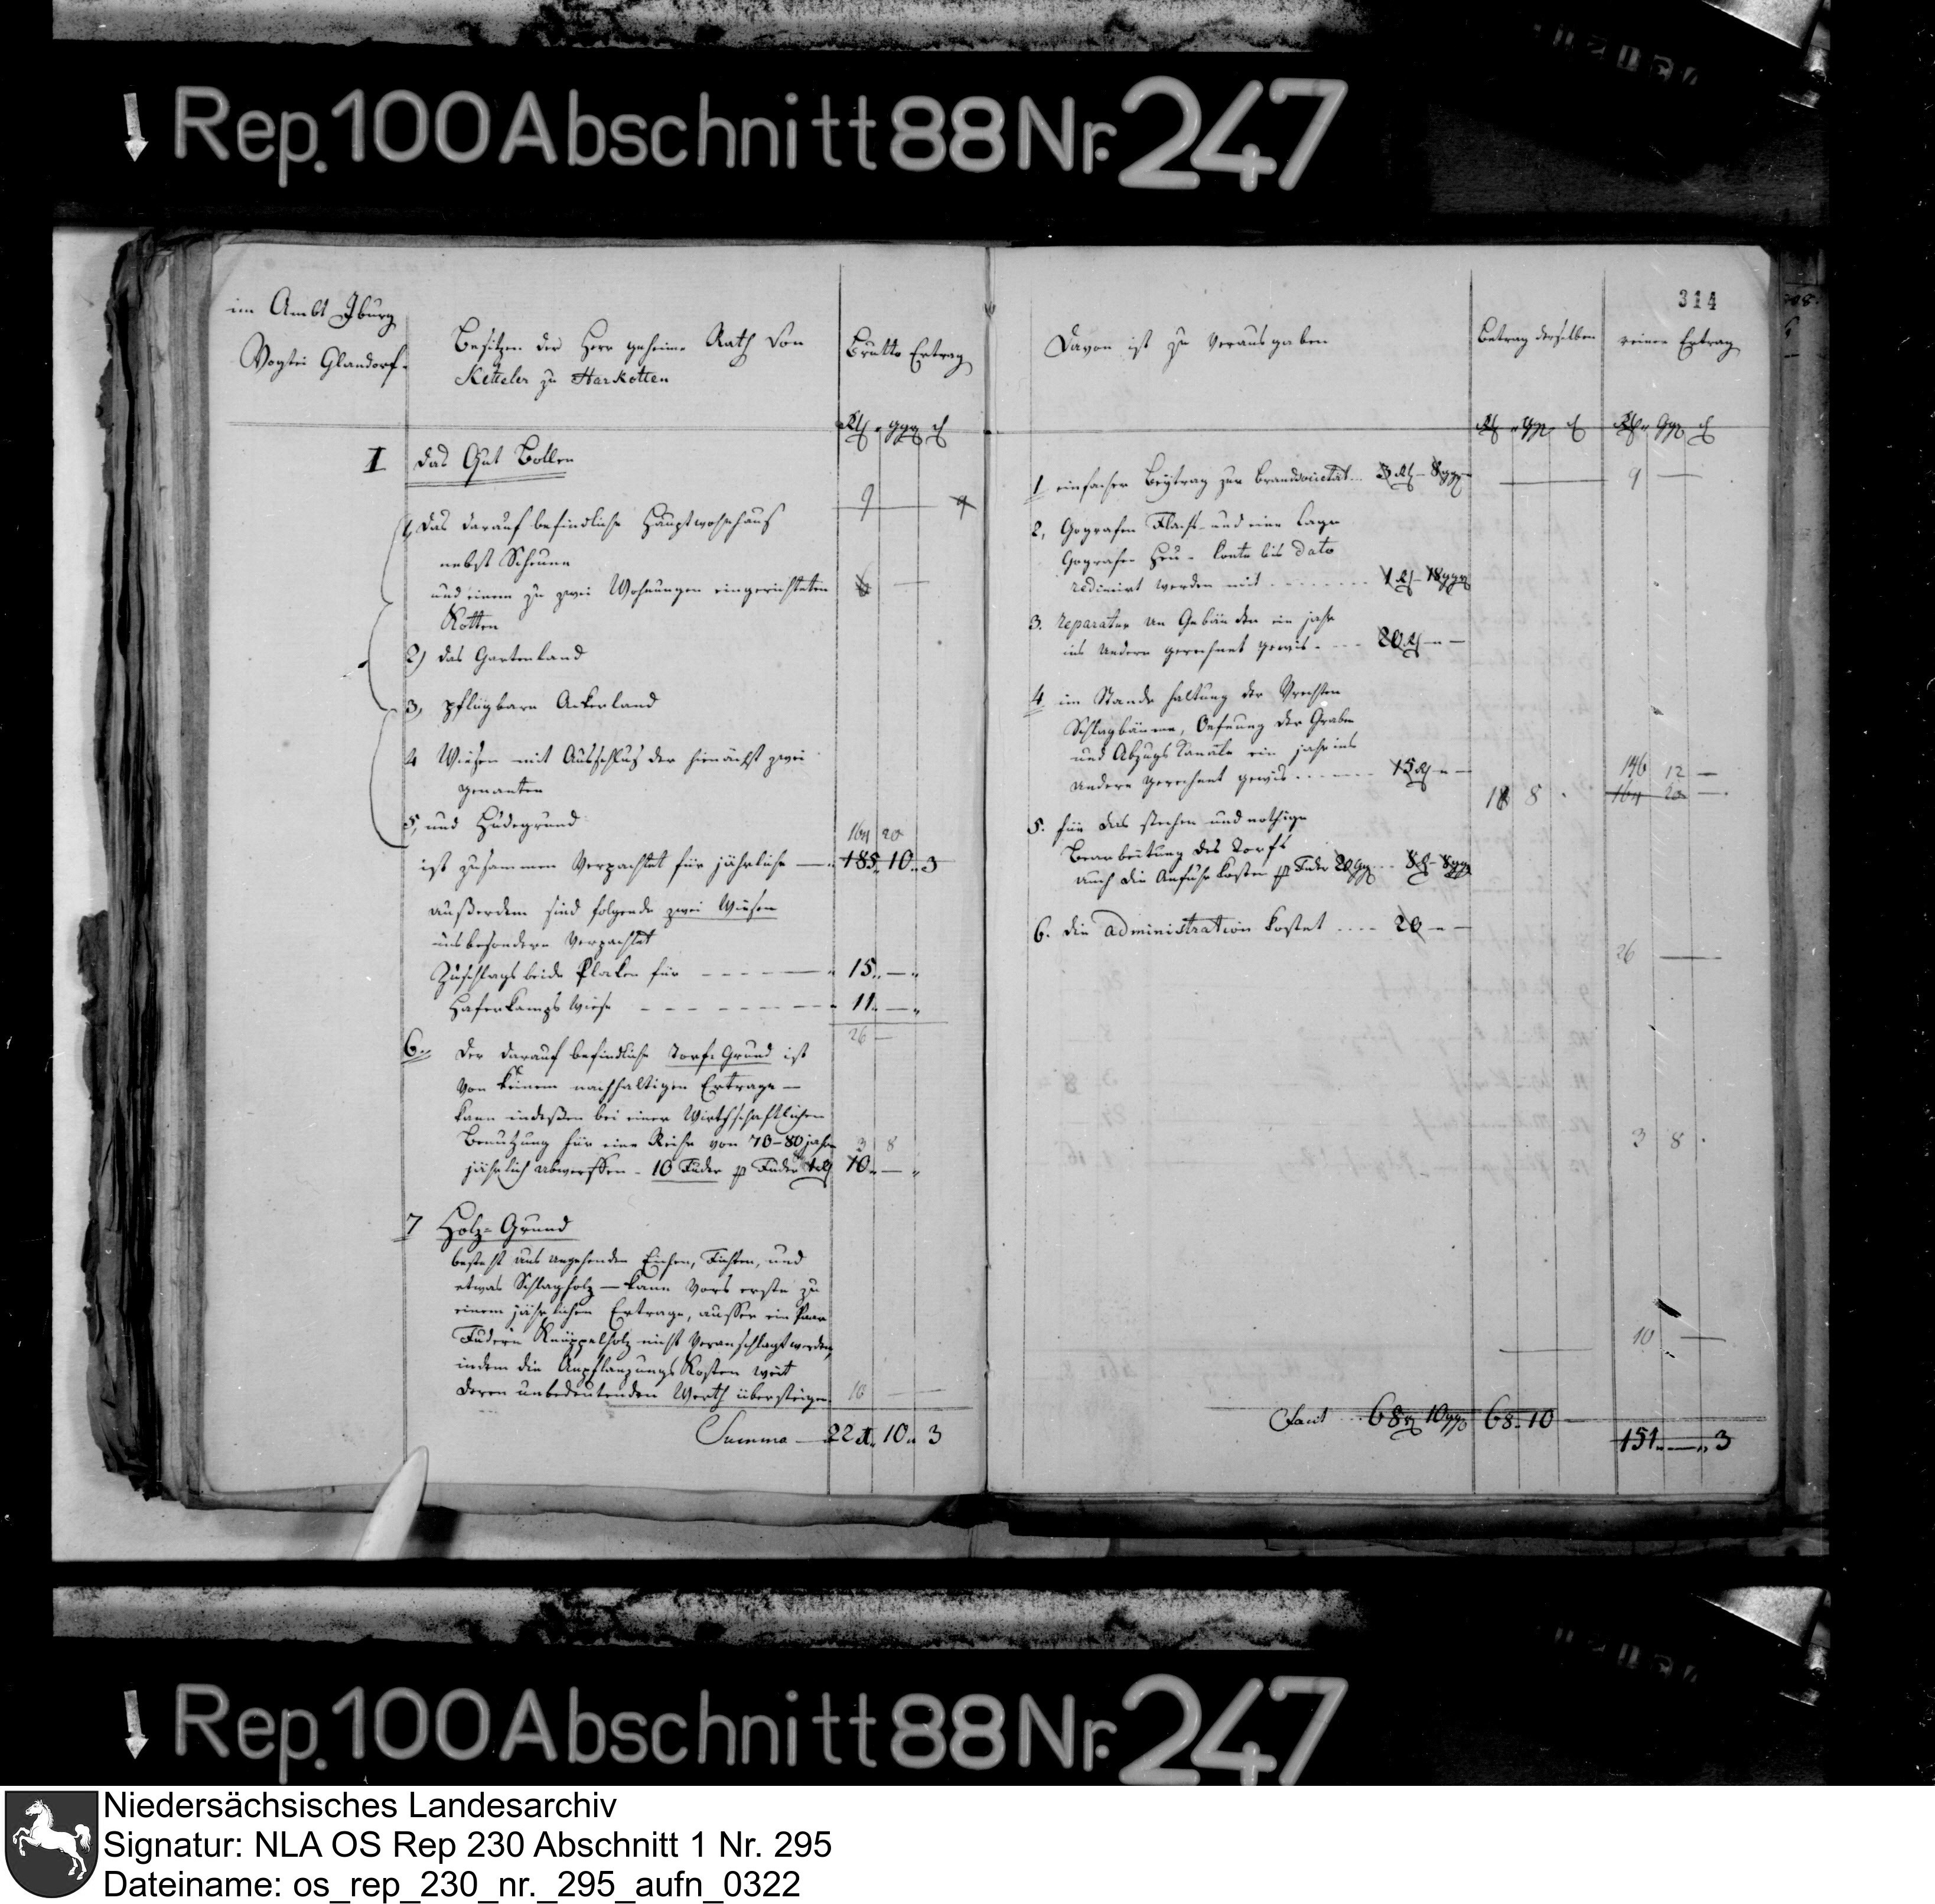 Rep. 100 Abschnitt 88 Nr. 247
im Ambt Iburg
Vogtei Glandorf.
Besitzen der Herr geheime Rath von
Ketteler zu Harkotten
Brutto Ertrag
Rth ggr d
I das Gut Bollen
1, das darauf befindliche Hauptwohnhaus
nebst Scheune
9 — 9
und einem zu zwei Wohnungen eingerichteten
Kotten
2) das Gartenland
3, pflügbare Ackerland
4 Wiesen mit Ausschlus der hienächst zwei
genanten
5, und Hüdegrund
164 20
ist zusammen verpachtet für jährliche — 185.. 10.. 3
außerdem sind folgende zwei Wiesen
insbesondere verpachtet
Zuschlags beide Placken für - - - - 15.. — „
Haferkamps Wiese - - - - - - - 11.. — „
26 —
6. der darauf befindliche Torf-Grund ist
von keinem nachhaltigen Ertrage —
kann indeßen bei einer Wirthschaftlichen
Benutzung für eine Reihe von 70-80 jahre
3 8
jährlich abwerffen - 10 Fuder p Fuder 1 Rth 10.. — „
7 Holz-Grund
besteht aus angehenden Eichen, Fichten, und
etwas Schlagholz — kann vors erste zu
einem jährlichen Ertrage, ausser ein Paar
Fudern Knüppelholz nicht veranschlagt werden,
indem die Anpflanzungs Kosten weit
deren unbedeutenden Werth übersteigen.
10 —
Summa — 221.. 10.. 3
314
Davon ist zu verausgaben
Betrag derselben
reiner Ertrag
Rth ggr d
Rth ggr d
1 einfacher Beytrag zur Brandsocietät... 3 Rth - 8 ggr
9 —
2, Gografen Flachs- und eine Lage
Gografen Heu - konte bis dato
redimirt werden mit . . . . . . . 1 Rth - 18 ggr
3. reparatur an Gebäuden ein jahr
ins andere gerechnet gewis - . . . . 20 Rth - —
4 im Stande haltung der Vrechten
Schlagbäume, Oefnung der Graben
und Abzugs Canäle ein jahr ins
andere gerechnet gewis . . . . . . 15 Rth - —
18 8 .
146 12 —
164 20 —
5. für das stechen und nothige
Bearbeitung des Torfs
auch die Anfuhr kosten p Fuder 20 ggr... 8 Rth - 8 ggr
6. die administration kostet . . . . 20 - —
26 —
3 8 .
10 —
facit . . . 68 Rth 10 ggr 68.. 10 —
151.. — „ 3
Rep. 100 Abschnitt 88 Nr. 247
Niedersächsisches Landesarchiv
Signatur: NLA OS Rep 230 Abschnitt 1 Nr. 295
Dateiname: os_rep_230_nr._295_aufn_0322